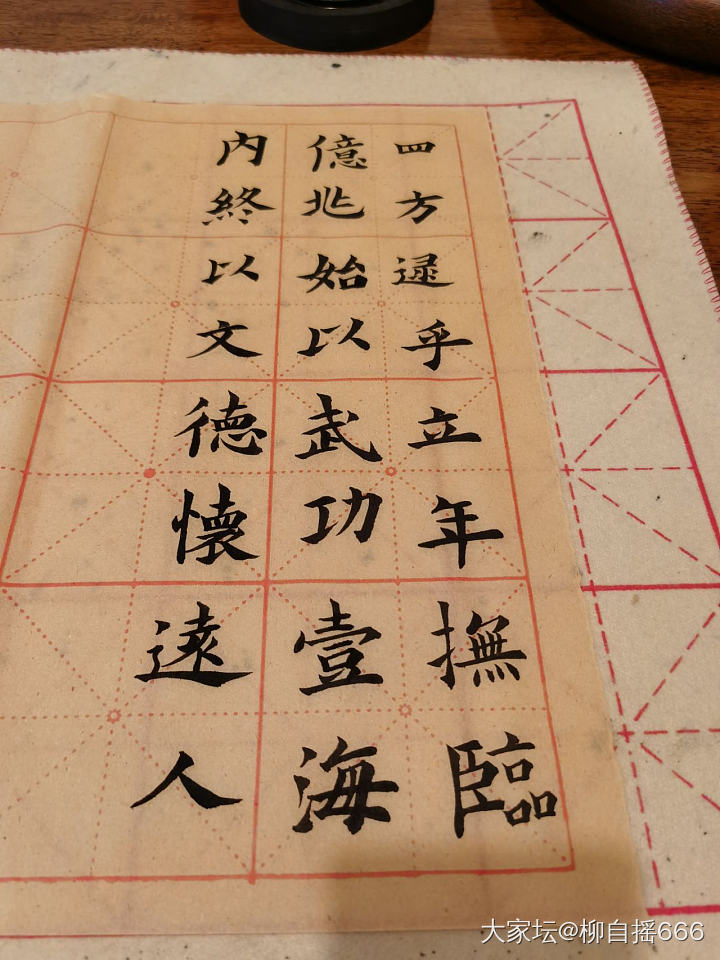 四方逯乎立年撫臨
億兆始以武功壹海
内終以文德懷遠人
大家坛@柳自摇666